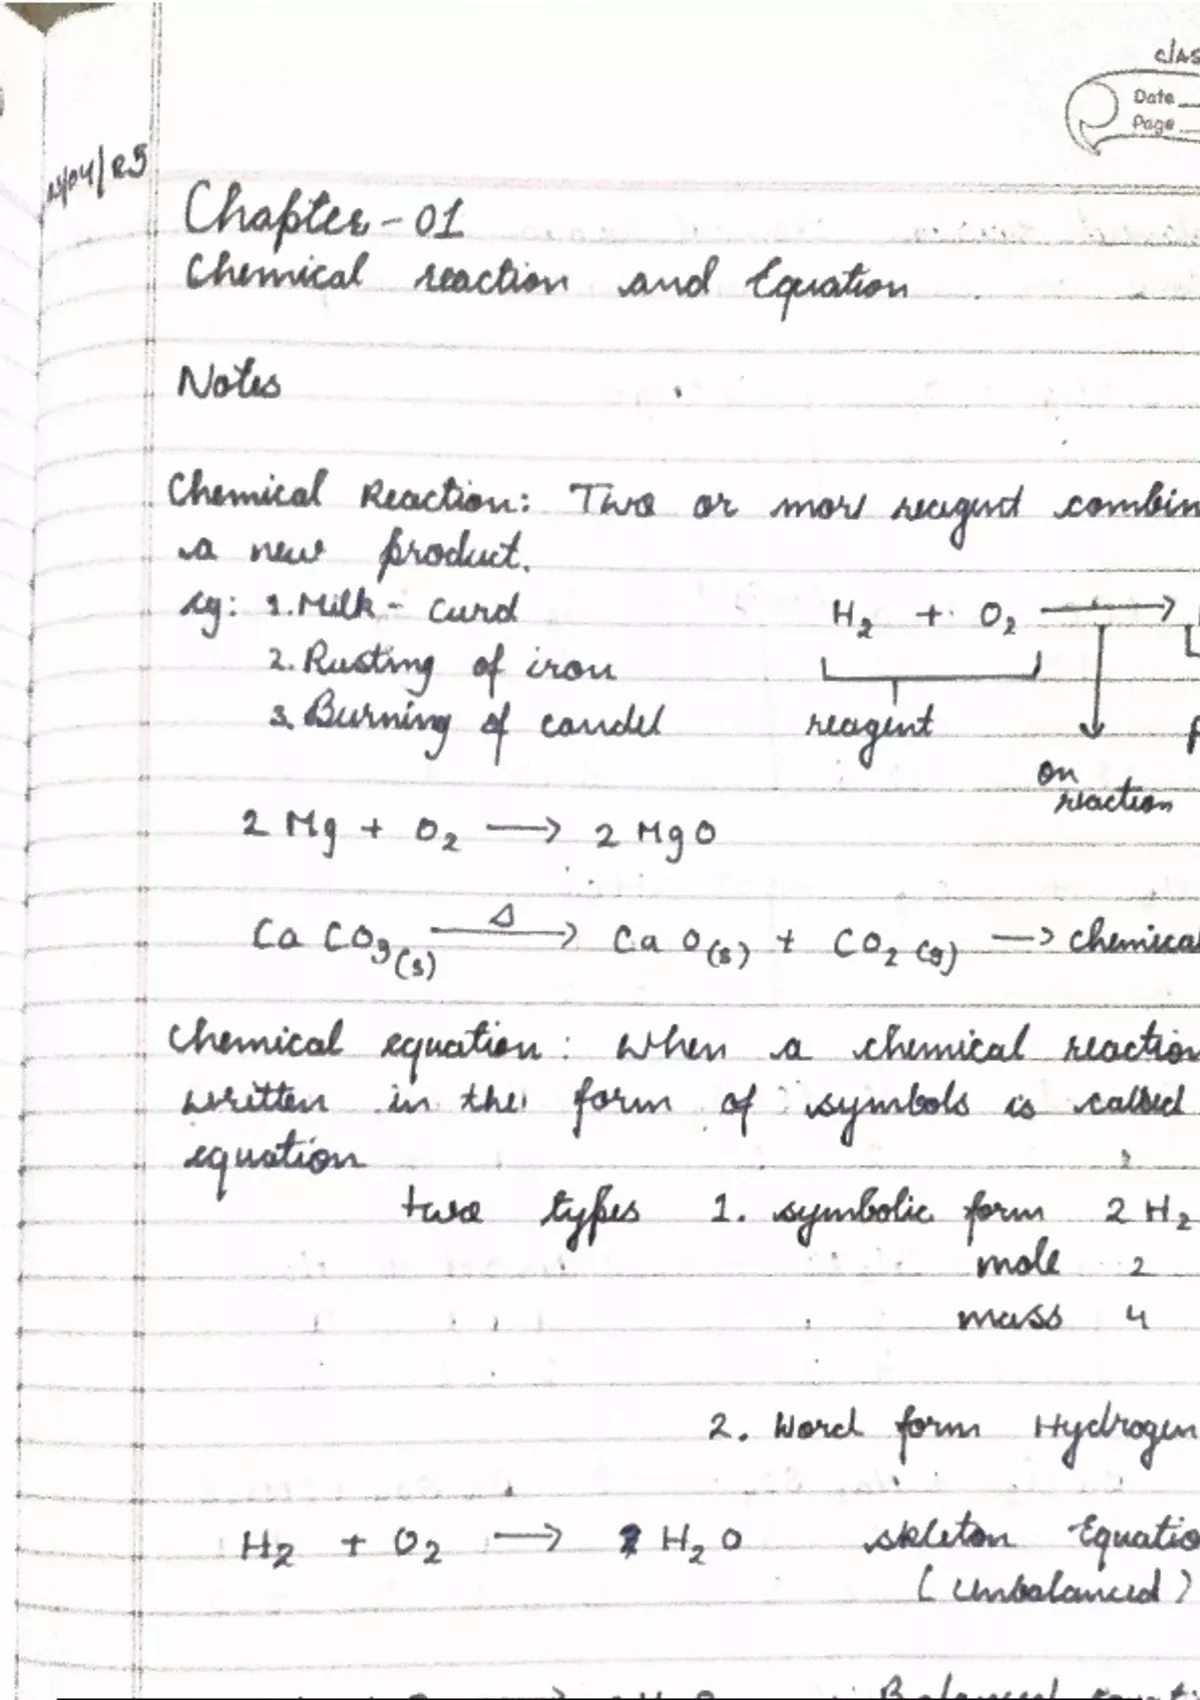 clas
Date
Page
/04/25
Chapter-01
Chemical reaction and Equation
Notes
Chemical Reaction: Two or more reagent combin
a new product.
eg: 1. Milk - curd
H₂ + O₂ ⟶
2. Rusting of iron
3. Burning of candel
reagent
on
reaction
2 Mg + O₂ ⟶ 2 MgO
CaCO₃(s) —Δ→ CaO(s) + CO₂(g) → chemical
Chemical equation: When a chemical reaction
written in the form of symbols is called
equation
two types 1. symbolic form 2 H₂
mole 2
mass 4
2. Word form Hydrogen
H₂ + O₂ ⟶ H₂O skleton Equatio
(Unbalanced)